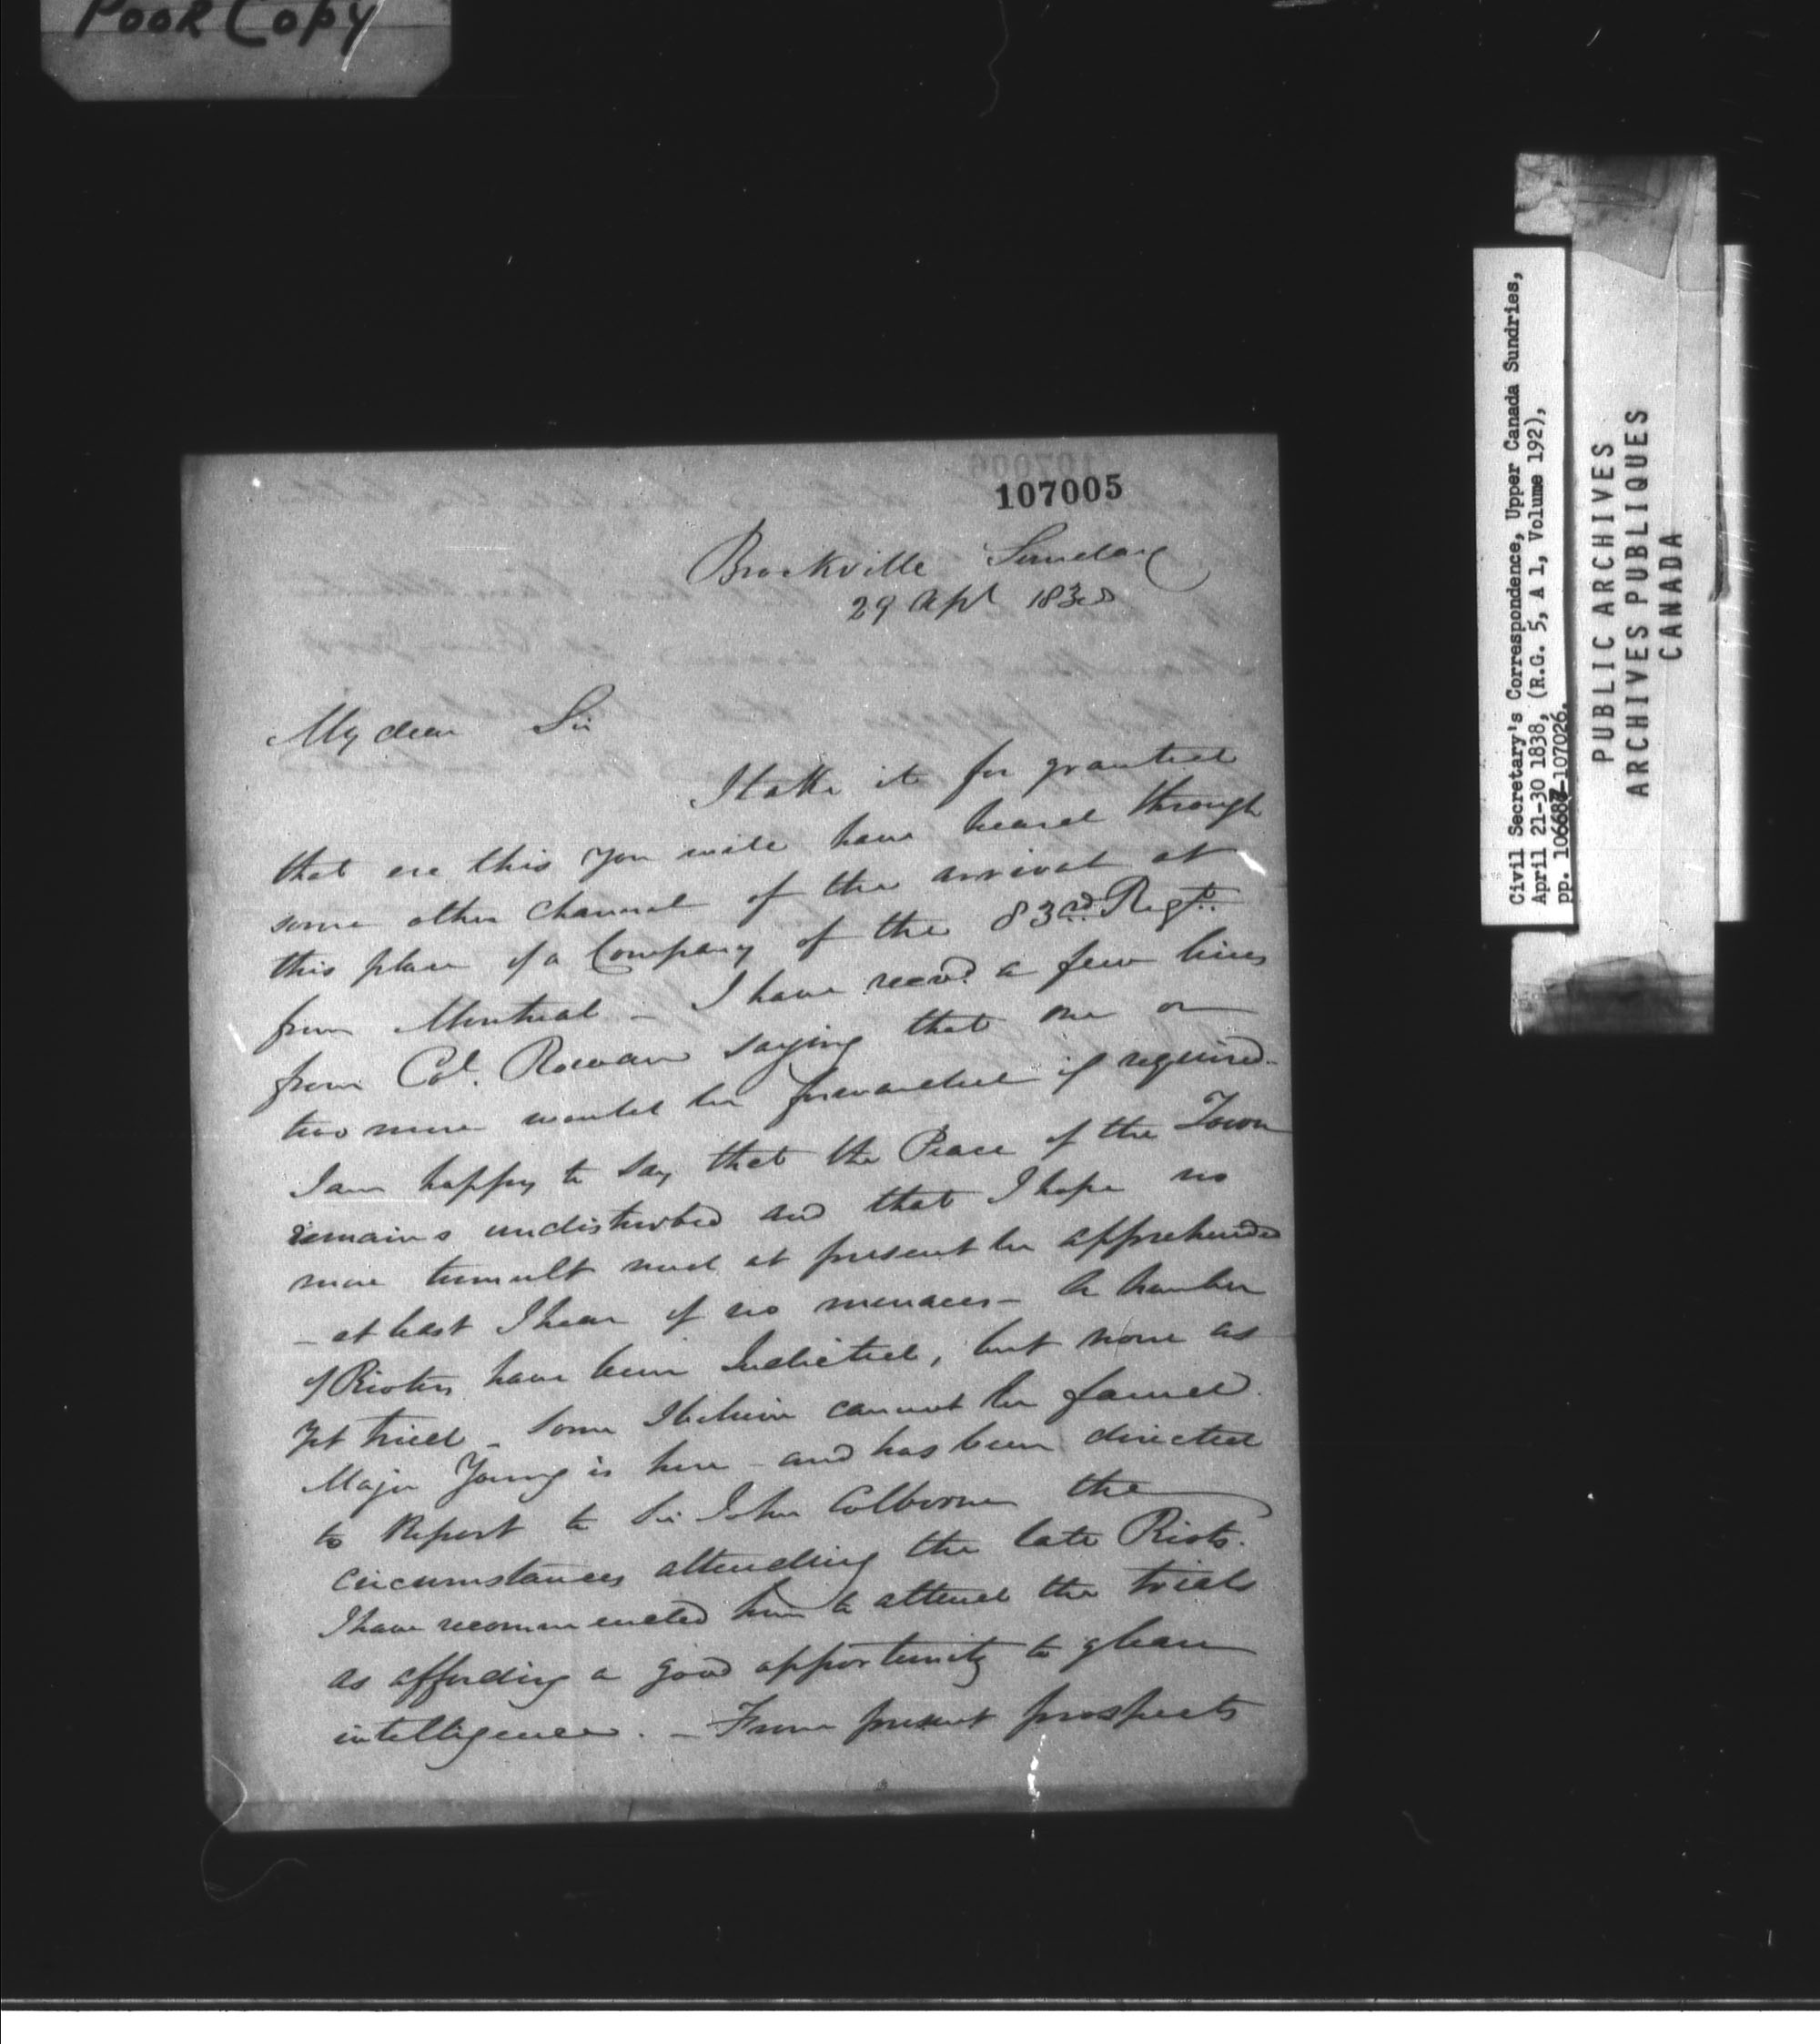 Poor Copy
107005
Brockville Sunday
29 Apl 1838
My dear Sir
I take it for granted
that ere this you will have heard through
some other channel of the arrival at
this place of a Company of the 83rd Regt.
from Montreal - I have recvd a few lines
from Col. Rowan saying that one or
two more would be forwarded if required -
I am happy to say that the Peace of the Town
remains undisturbed and that I hope no
more tumult need at present be apprehended
- at least I hear of no menaces - A number
of Rioters have been Indicted, but none as
yet tried - Some I believe cannot be found.
Major Young is here - and has been directed
to Report to Sir John Colborne the
circumstances attending the late Riots.
I have recommended him to attend the trials
as affording a good opportunity to glean
intelligence. - From present prospects
Civil Secretary's Correspondence, Upper Canada Sundries,
April 21-30 1838, (R.G. 5, A 1, Volume 192),
pp. 106687-107026.
PUBLIC ARCHIVES
ARCHIVES PUBLIQUES
CANADA